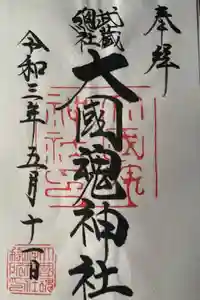 奉拝
武蔵
總社
大國魂神社
令和三年五月十一日